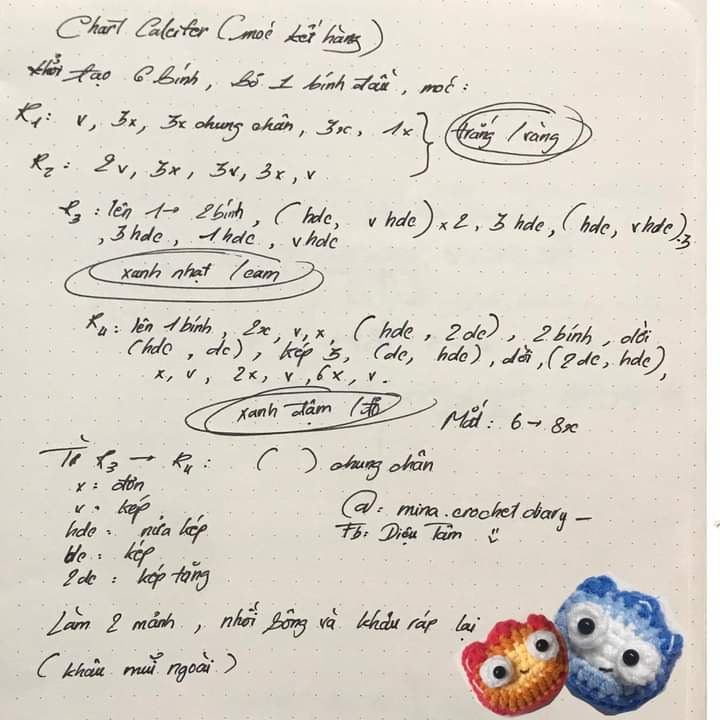 Chart Calcifer (móc kết hàng)
khởi tạo 6 bính, bỏ 1 bính đầu, móc:
R1: v, 3x, 3x chung chân, 3x, 1x } trắng / vàng
R2: 2v, 3x, 3v, 3x, v
R3: lên 1 → 2 bính, (hdc, v hdc) x 2, 3 hdc, (hdc, v hdc).3
, 3 hdc, 1 hdc, v hdc
xanh nhạt / cam
R4: lên 1 bính, 2x, v, x, (hdc, 2dc), 2 bính, dời
(hdc, dc), kép 3, (dc, hdc), dời, (2dc, hdc),
x, v, 2x, v, 6x, v.
xanh đậm / đỏ
Mắt: 6 → 8x
Từ R3 → R4: ( ) chung chân
x: đơn
v: kép
hdc: nửa kép
dc: kép
2dc: kép tăng
@: mina.crochetdiary_
Fb: Diệu Tâm
Làm 2 mảnh, nhồi bông và khâu ráp lại
(khâu mũi ngoài)